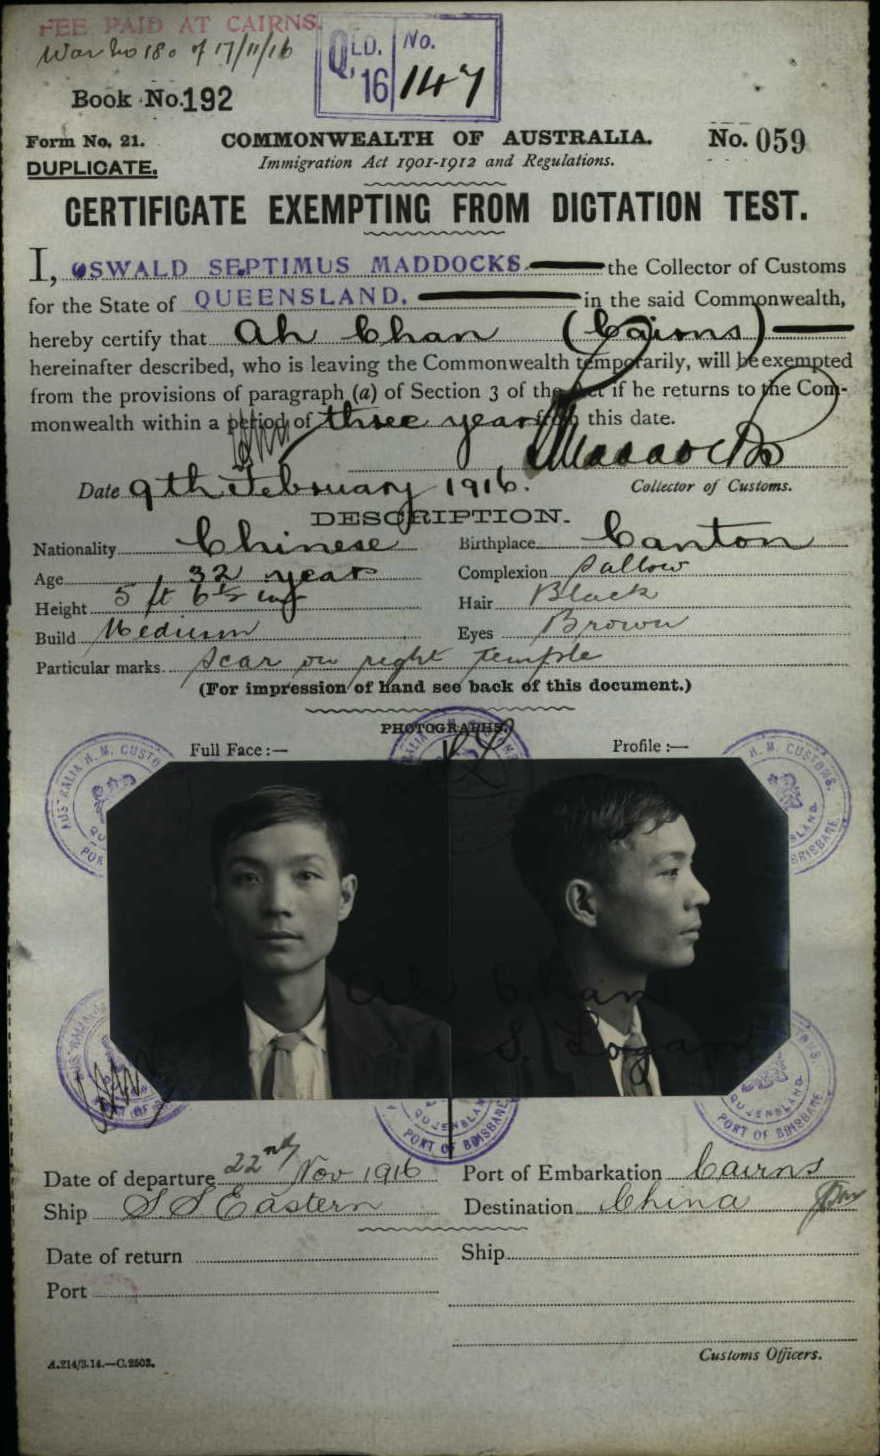 FEE PAID AT CAIRNS.
War No 180 of 17/11/16
QLD. No.
'16 147
Book No. 192
Form No. 21. COMMONWEALTH OF AUSTRALIA. No. 059
DUPLICATE. Immigration Act 1901-1912 and Regulations.
CERTIFICATE EXEMPTING FROM DICTATION TEST.
I, OSWALD SEPTIMUS MADDOCKS the Collector of Customs
for the State of QUEENSLAND. in the said Commonwealth,
hereby certify that Ah Chan (Cairns)
hereinafter described, who is leaving the Commonwealth temporarily, will be exempted
from the provisions of paragraph (a) of Section 3 of the Act if he returns to the Com-
monwealth within a period of three years from this date.
Maddocks
Date 9th February 1916. Collector of Customs.
DESCRIPTION.
Nationality Chinese Birthplace Canton
Age 32 years Complexion Sallow
Height 5 ft 6½ ins Hair Black
Build Medium Eyes Brown
Particular marks. Scar on right temple
(For impression of hand see back of this document.)
PHOTOGRAPHS.
Full Face :— Profile :—
AUSTRALIA H. M. CUSTO
H. M. CUSTOMS.
BRISBANE
Ah Chan
S. Logan
QUEENSLAND
PORT OF BRISBANE
QUEENSLAND
PORT OF BRISBANE
Date of departure 22nd Nov 1916 Port of Embarkation Cairns
Ship S. S Eastern Destination China
Date of return Ship
Port
A.214/3.14.—C.2503. Customs Officers.